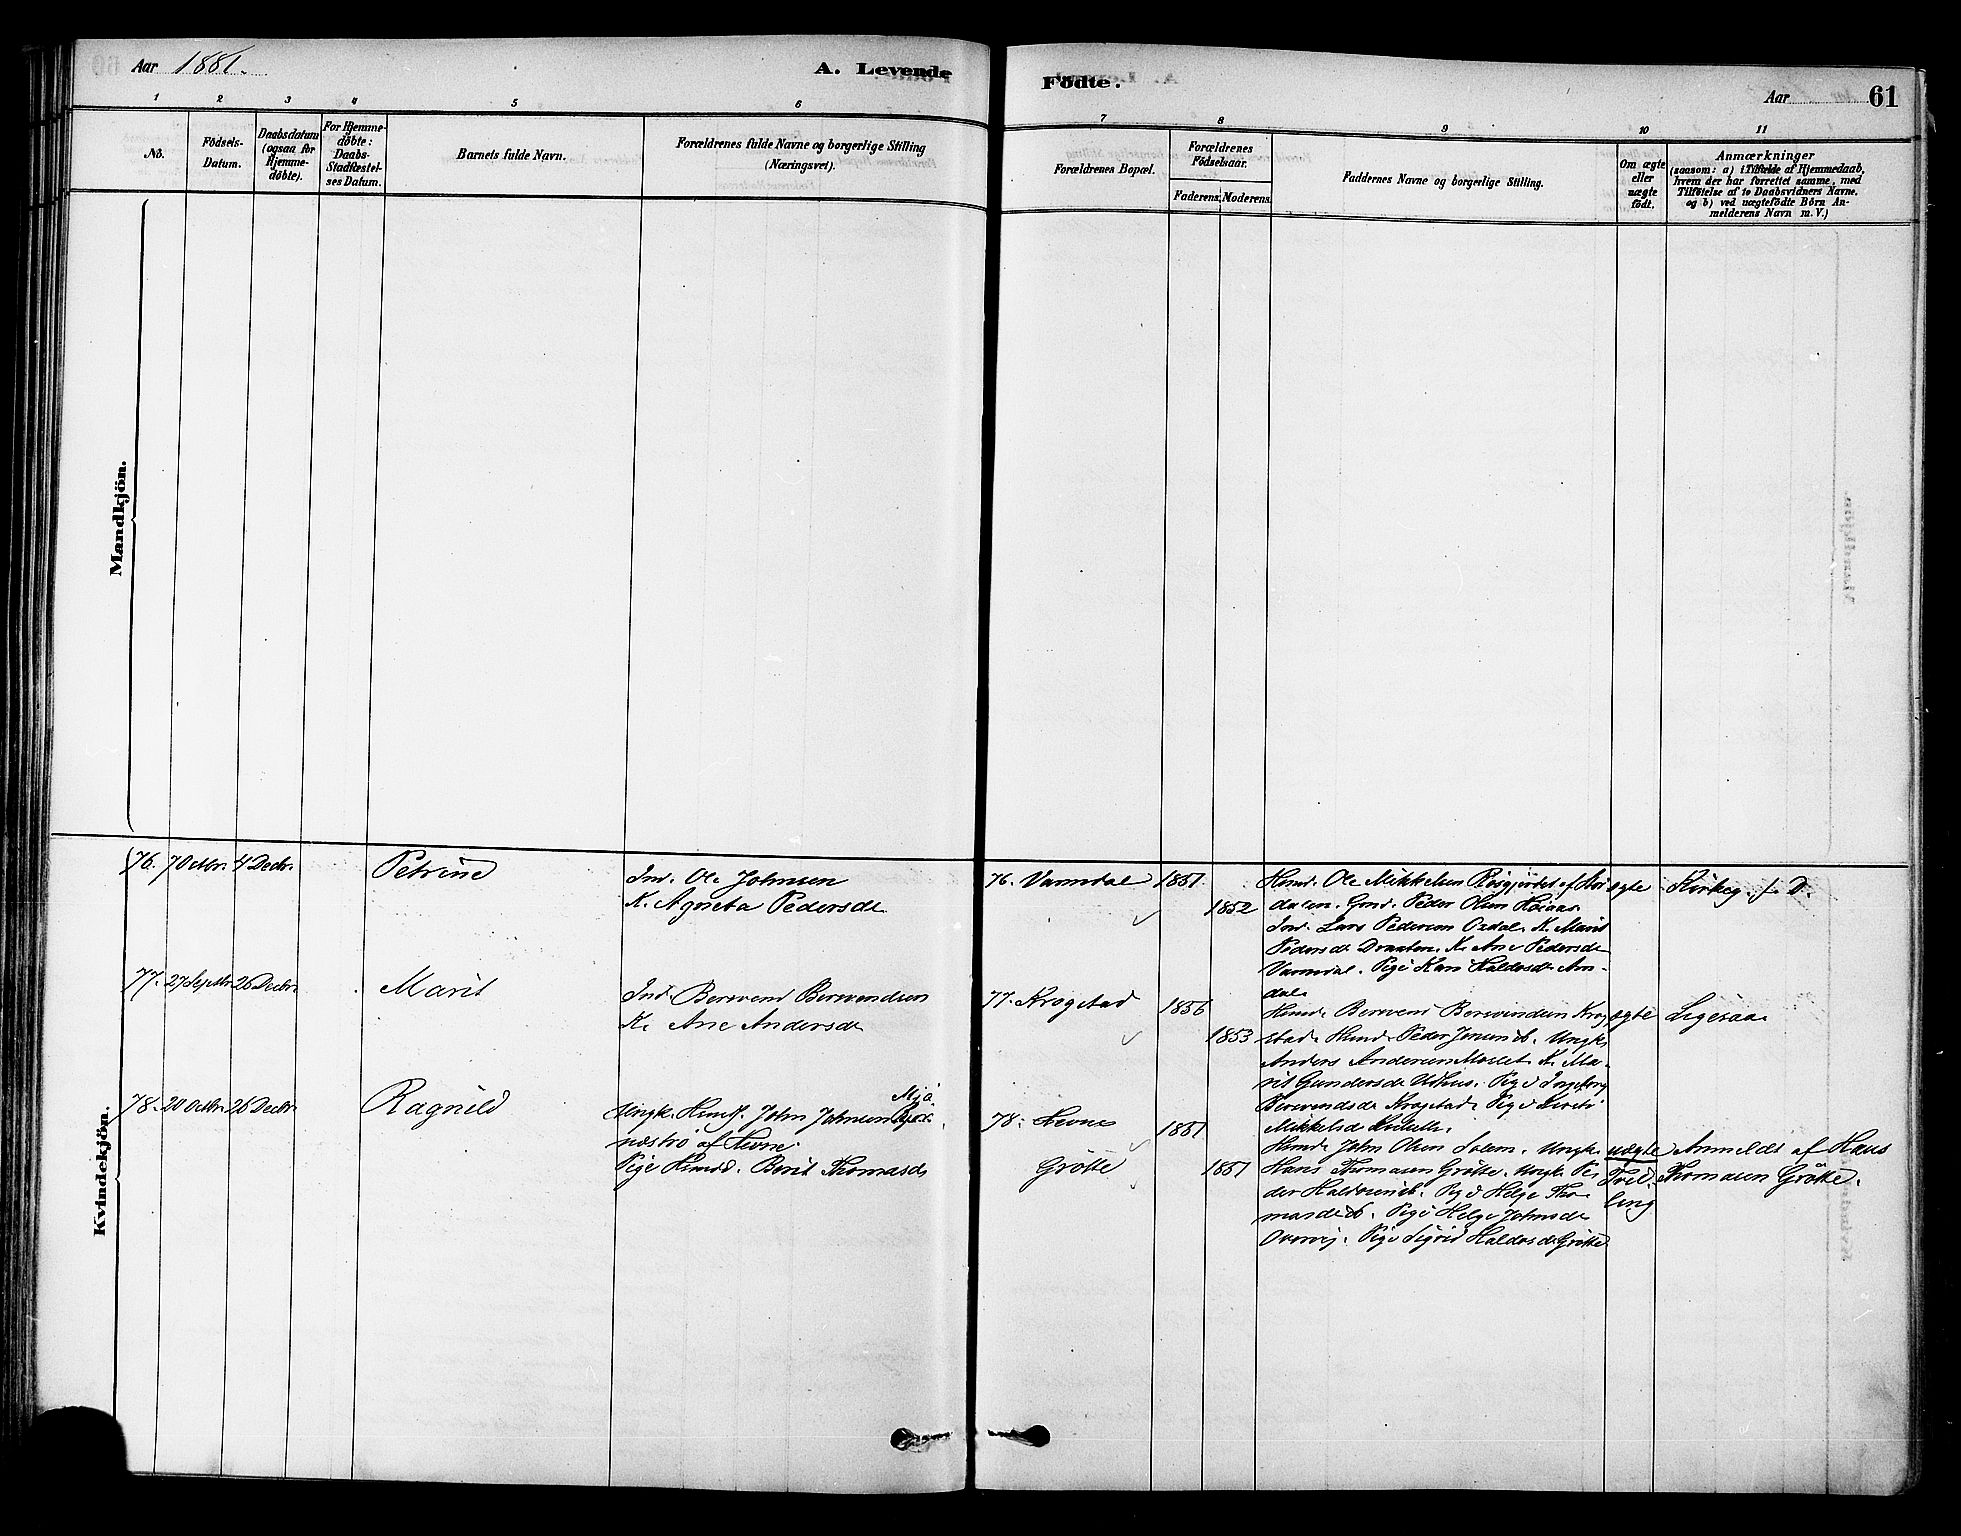 Aar 1881.
A. Levende
Födte.
Aar 61
1 2 3 4 5 6 7 8 9 10 11
No.
Födsels-
Datum.
Daabsdatum
(ogsaa for
Hjemme-
döbte).
For Hjemme-
döbte:
Daabs-
Stadfæstel-
ses Datum.
Barnets fulde Navn.
Forældrenes fulde Navne og borgerlige Stilling
(Næringsvei).
Forældrenes Bopæl.
Forældrenes
Födselsaar.
Faderens. Moderens.
Faddernes Navne og borgerlige Stilling.
Om ægte
eller
uægte
födt.
Anmærkninger
(saasom: a) i Tilfælde af Hjemmedaab,
hvem der har forrettet samme, med
Tilföielse af to Daabsvidners Navne,
og b) ved uægtefödte Börn An-
melderens Navn m. V.)
Mandkjön.
Kvindekjön.
76. 7 Octbr. 4 Decbr. Petrine
Ind. Ole Johnsen
K. Agneta Pedersdr
76. Vamdal 1851
1852
Huusm. Ole Mikkelsen
dalen. Peder Olsen
Ind. Lars Pedersen K. Marit
Pedersdr K. Ane Pedersdr
Vamdal. Pige Kari Haldosdr
dal
ægte
Kirkeg. f. D.
77. 27 Septbr. 26 Decbr. Marit
Ind. Berevend Berevendsen
K. Ane Andersdr
77. Krogstad 1856
1853
Berevend Berevendsen Krog
stad. Peder Jensen ib. Ungk.
Anders Andersen K. Ma-
rit Gundersdr Pige Ingeborg
Berevendsdr Krogstad. Pige
Mikkelsd
ægte
Ligesaa
78. 20 Octbr. 26 Decbr. Ragnild
Ungk. John Johnsen Mjö-
næströ af Hevne.
Pige Berit Thomasdr
78. Hevne 1851
Grötte 1851
John Olsen Solem. Ungk.
Hans Thomasen Grötte. Ungk. Pe-
der Haldorsen ib. Pige Helge Tho-
masdr ib. Pige Helge Johnsdr
Pige Sigrid Haldosdr Grötte
uægte
Tvil-
ling
Anmeldt af Hans
Thomasen Grötte.